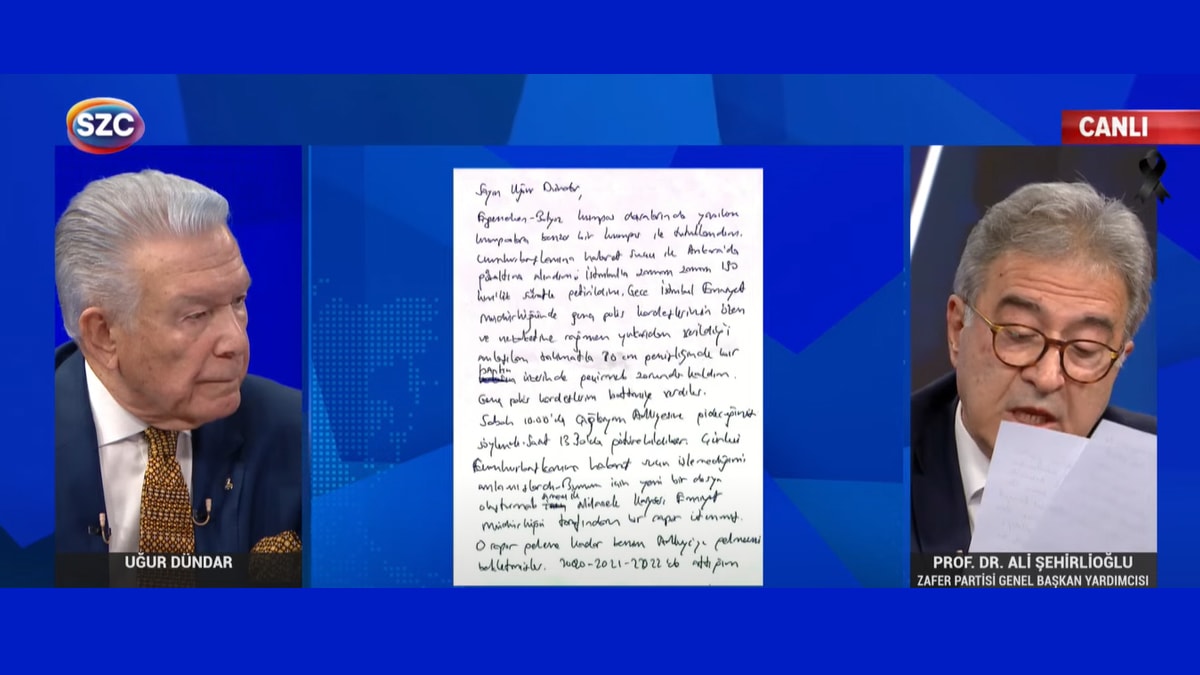 SZC
CANLI
Sayın Uğur Dündar,
Ergenekon-Balyoz kumpas davalarında yapılan
kumpaslara benzer bir kumpas ile tutuklandım.
Cumhurbaşkanına hakaret suçu ile Ankara'da
gözaltına alındım. İstanbul'a zaman zaman 190
km'lik süratle getirildim. Gece İstanbul Emniyet
Müdürlüğünde genç polis kardeşlerimin özen
ve nezaketine rağmen yukarıdan verildiği
anlaşılan talimatla 70 cm genişliğinde bir
bankın üzerinde geçirmek zorunda kaldım.
Genç polis kardeşlerim battaniye verdiler.
Sabah 10.00'da Çağlayan Adliyesine gideceğimiz
söylendi. Saat 13.30'da götürebildiler. Çünkü
Cumhurbaşkanına hakaret suçu işlemediğimi
anlamışlardı. Bunun için yeni bir dosya
oluşturmak Kayseri Emniyet
Müdürlüğü tarafından bir rapor istenmiş.
O rapor gelene kadar benim Adliye'ye gelmemi
bekletmişler. 2020-2021-2022'de attığım
UĞUR DÜNDAR
PROF. DR. ALİ ŞEHİRLİOĞLU
ZAFER PARTİSİ GENEL BAŞKAN YARDIMCISI